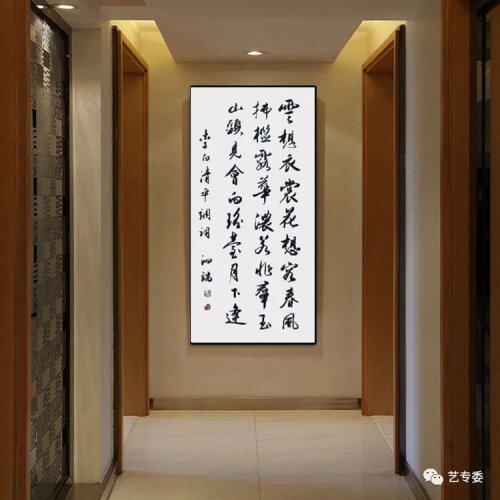 雲想衣裳花想容春風
拂檻露華濃若非羣玉
山頭見會向瑤臺月下逢
李白清平調詞
艺专委